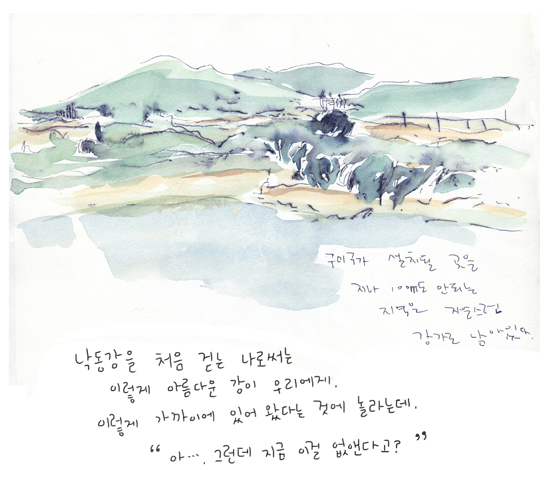 구미보가 설치될 곳을
지나 100m도 안되는
지역은 자연스런
강가로 남아있다.
낙동강을 처음 걷는 나로써는
이렇게 아름다운 강이 우리에게,
이렇게 가까이에 있어 왔다는 것에 놀라는데,
“ 아···, 그런데 지금 이걸 없앤다고? ”